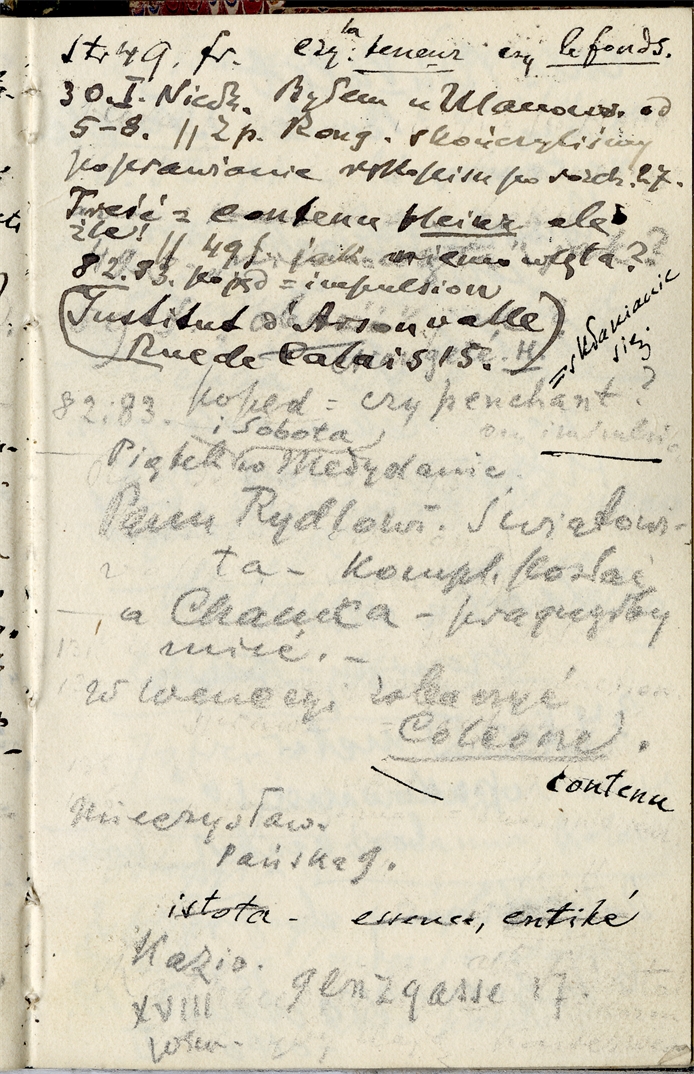 str 49. fr. czy: la teneur czy le fonds.
30.I. Niedz. Byłem u Ulanows. od
5-8. // Zp. Rong. skończyliśmy
poprawianie rękopisu po rozdz. 27.
Treść = contenu pleine ale
źle! // 49f. jak niemowlęta??
82.83. popęd = impulsion
(Institut d'Arsonvalle)
Rue de Calais 15.
= skłanianie
się
82.83. popęd = czy penchant?
ou impulsio
i Sobota
Piątek w Medydanie.
Panu Rydlowi. Światowi-
ta - kompl. posłać
a Chanka - pragnąłby
mieć. -
w Wenecyi zobaczyć
Coleone).
contenu
Mieczysław.
Pańska 9.
istota - essence, entité
Kazio.
XVIII genzgasse 17.